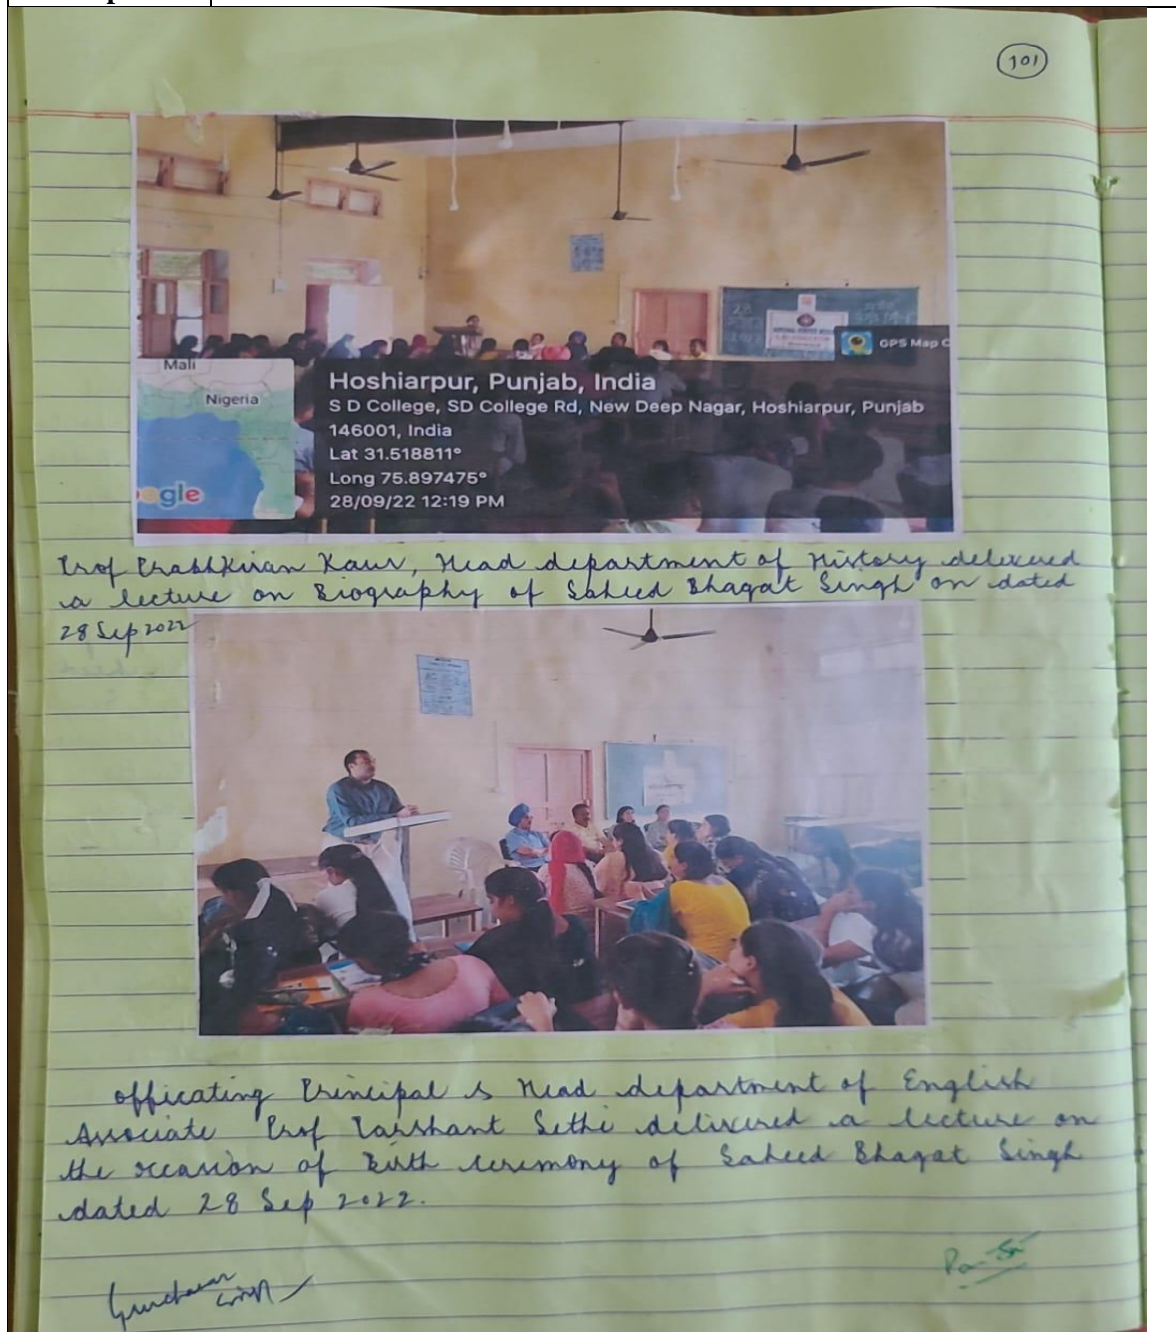 101
28
NATIONAL SERVICE
GPS Map C
Mali
Nigeria
ogle
Hoshiarpur, Punjab, India
S D College, SD College Rd, New Deep Nagar, Hoshiarpur, Punjab
146001, India
Lat 31.518811°
Long 75.897475°
28/09/22 12:19 PM
Prof PrabhKiran Kaur, Head department of History delivered
a lecture on Biography of Saheed Bhagat Singh on dated
28 Sep 2022
officating Principal & Head department of English
Associate Prof Parshant Sethi delivered a lecture on
the occasion of Birth ceremony of Saheed Bhagat Singh
dated 28 Sep 2022.
Gurcharan
Singh